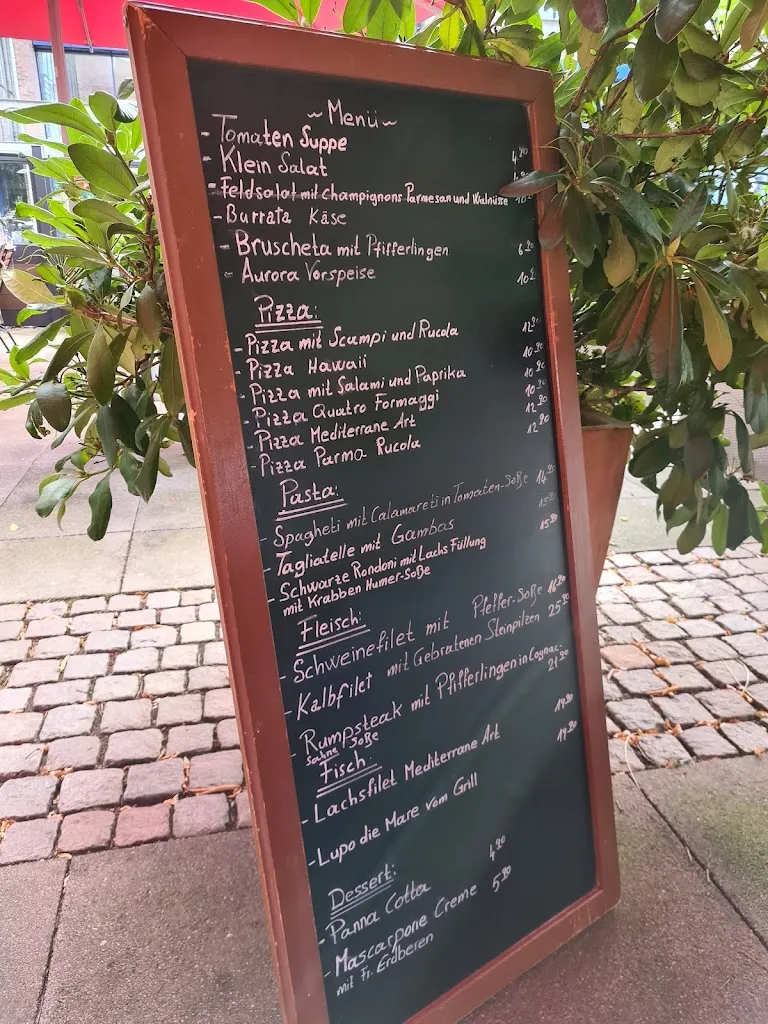 ~Menü~
- Tomaten Suppe 4.90
- Klein Salat
- Feldsalat mit Champignons Parmesan und Walnüsse
- Burrata Käse
- Bruscheta mit Pfifferlingen
- Aurora Vorspeise
Pizza:
- Pizza mit Scampi und Rucola
- Pizza Hawaii
- Pizza mit Salami und Paprika
- Pizza Quatro Formaggi
- Pizza Mediterrane Art
- Pizza Parma Rucola
Pasta:
- Spagheti mit Calamareti in Tomaten-Soße 14.90
- Tagliatelle mit Gambas
- Schwarze Rondoni mit Lachs Füllung 15.90
mit Krabben Humer-Soße
Fleisch:
- Schweinefilet mit Pfeffer-Soße 16.90
- Kalbfilet mit Gebratenen Steinpilzen 25.90
- Rumpsteak mit Pfifferlingen in Cognac- 21.90
Sahne Soße
Fisch:
- Lachsfilet Mediterrane Art 19.90
- Lupo die Mare vom Grill 19.90
Dessert:
- Panna Cotta 4.90
- Mascarpone Creme 5.90
mit Fr. Erdberen